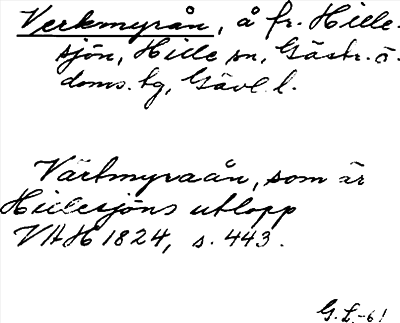 Verkmyrån, å fr. Hille-
sjön, Hille sn, Gästr. ö.
doms. tg, Gävl. l.
Värkmyraån, som är
Hillesjöns utlopp
VHH 1824, s. 443.
G. L. -61